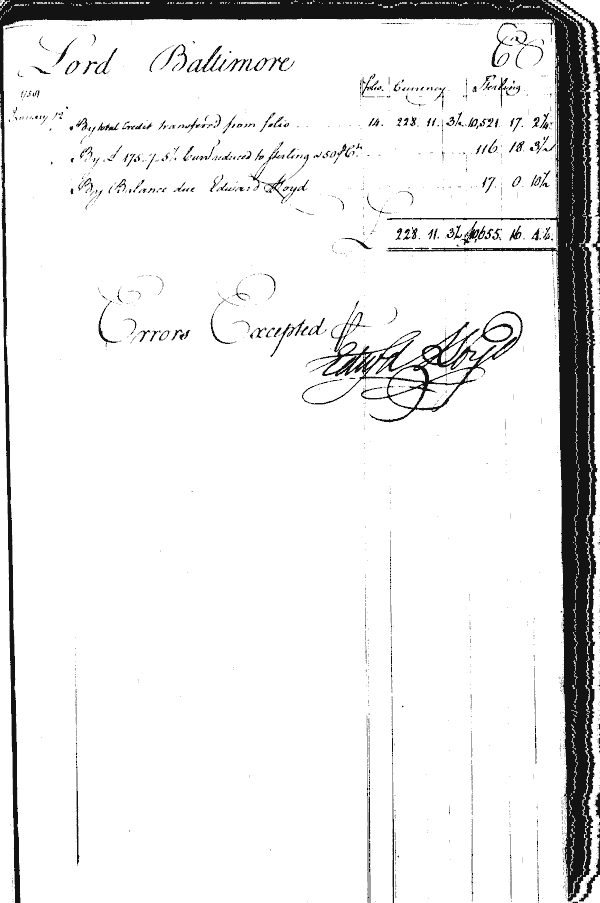 Lord Baltimore Cr
folio. Currency Sterling
January 12th By total Credit transferrd from folio 14. 228. 11. 3½ 10,521. 17. 2¼
By £ 175.7.5½ Curr reduced to sterling a 50 P Ct. 116. 18. 3½
By Balance due Edward Lloyd 17. 0. 10½
£ 228. 11. 3½ £10,655. 16. 4½
Errors Excepted P
Edwd Lloyd